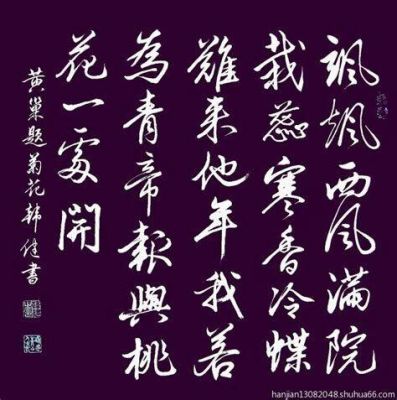 颯颯西风滿院
栽蕊寒香冷蝶
難来他年我若
為青帝報與桃
花一處開
黄巢题菊花韩健書
hanjian13082048.shuhua66.com